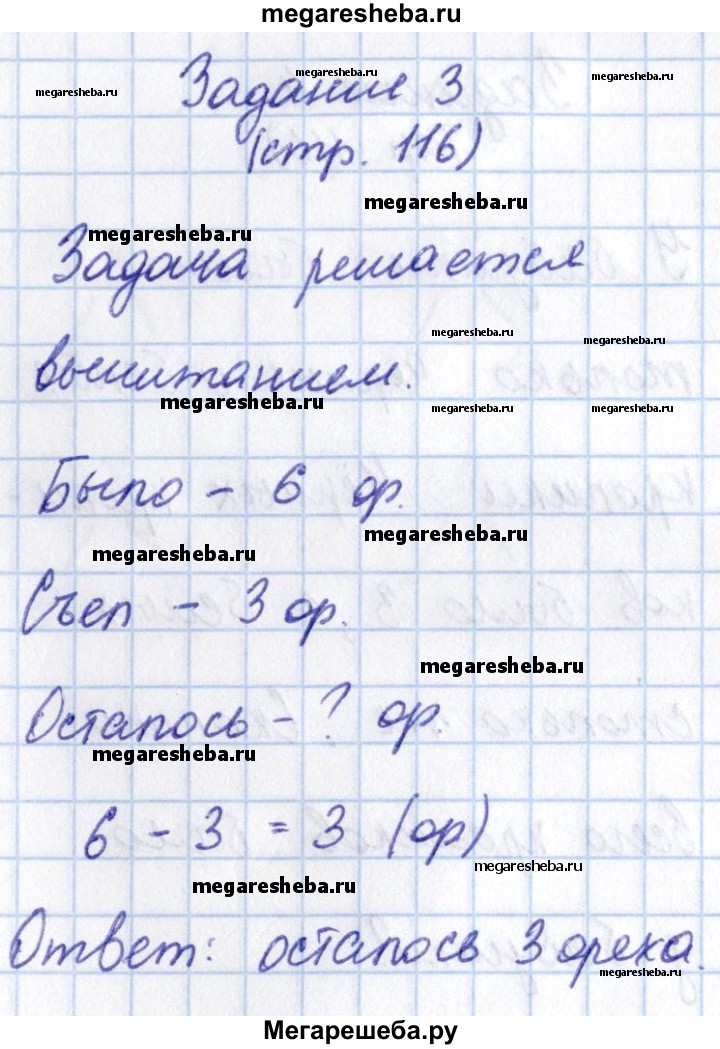 megaresheba.ru
megaresheba.ru
megaresheba.ru
megaresheba.ru
Задание 3
(стр. 116)
megaresheba.ru
megaresheba.ru
Задача решается
megaresheba.ru
megaresheba.ru
вычитанием.
megaresheba.ru
megaresheba.ru
megaresheba.ru
Было - 6 ор.
megaresheba.ru
megaresheba.ru
Съел - 3 ор.
megaresheba.ru
Осталось - ? ор.
megaresheba.ru
6 - 3 = 3 (ор)
megaresheba.ru
megaresheba.ru
Ответ: осталось 3 ореха.
megaresheba.ru
Мегарешеба.ру